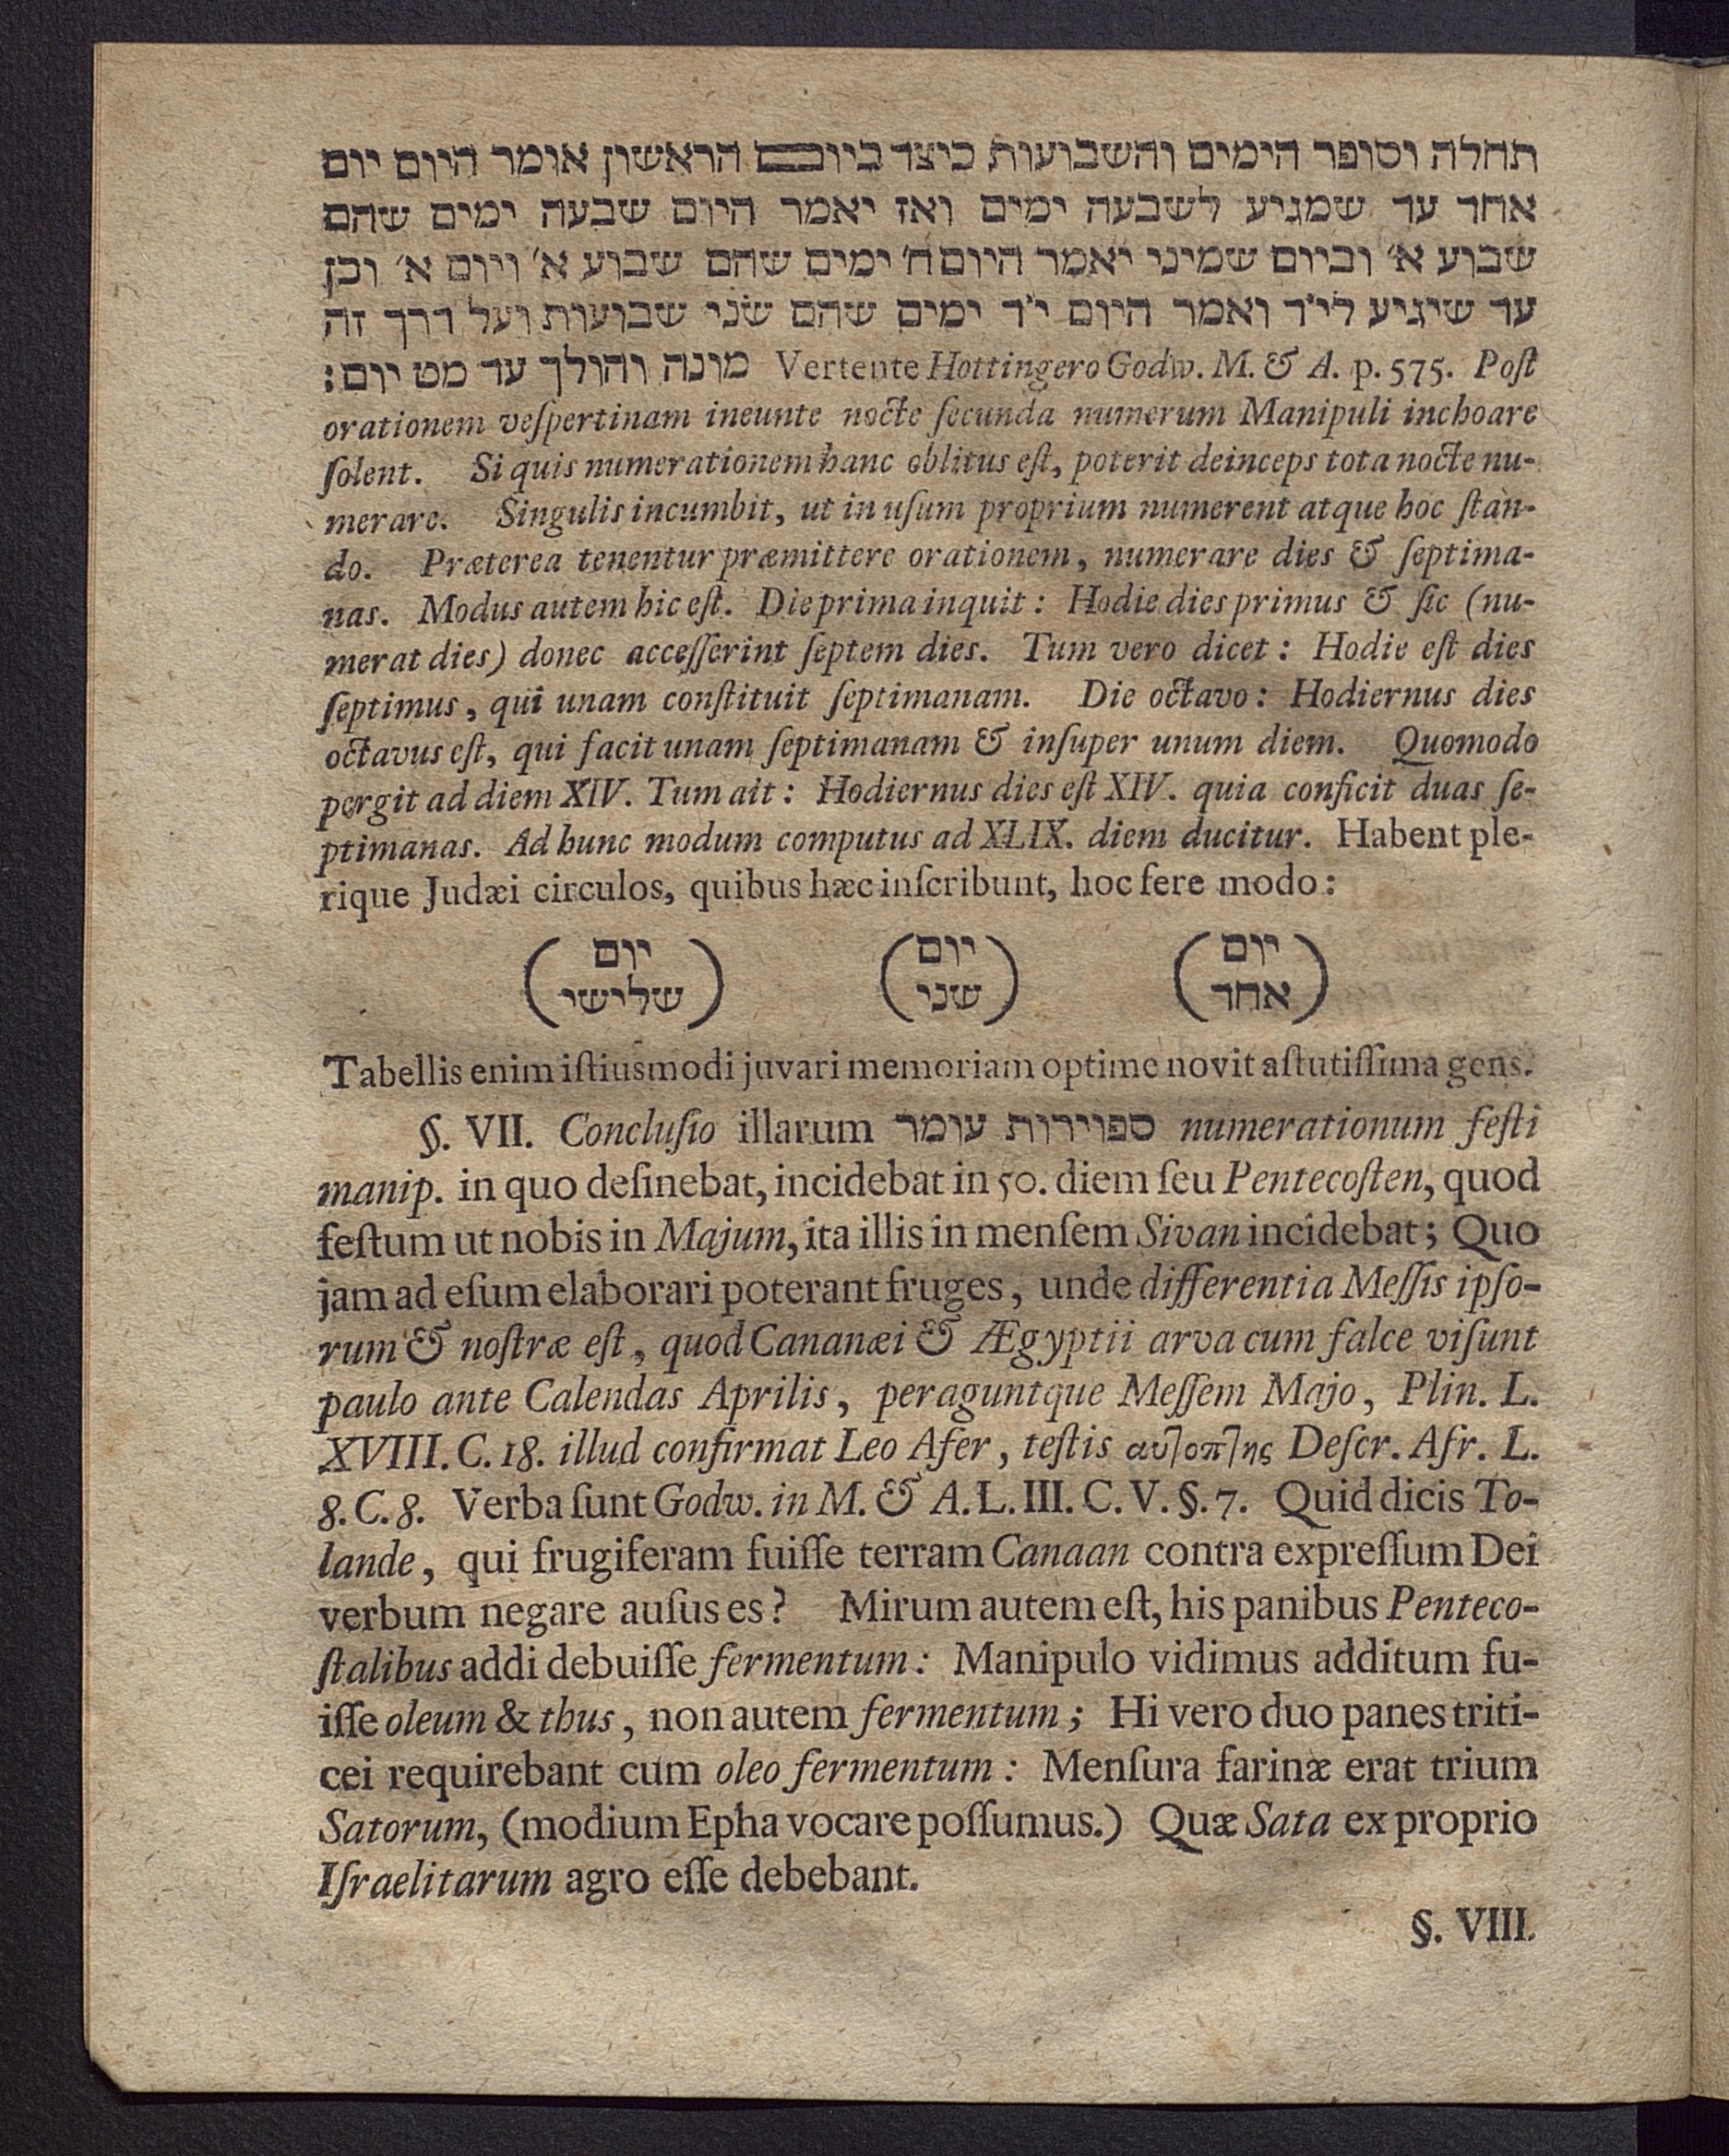 תחלה וסופר הימים והשבועות כיצד ביום הראשון אומר היום יום
אחד עד שמגיע לשבעה ימים ואז יאמר היום שבעה ימים שהם
שבוע א׳ וביום שמיני יאמר היום ח׳ ימים שהם שבוע א׳ ויום א׳ וכן
עד שיגיע לי״ד ואמר היום י״ד ימים שהם שני שבועות ועל דרך זה
מונה והולך עד מט יום: Vertente Hottingero Godw. M. & A. p. 575. Poſt
orationem veſpertinam ineunte nocte ſecunda numerum Manipuli inchoare
ſolent. Si quis numerationem hanc oblitus eſt, poterit deinceps tota nocte nu-
merare. Singulis incumbit, ut in uſum proprium numerent atque hoc ſtan-
do. Præterea tenentur præmittere orationem, numerare dies & ſeptima-
nas. Modus autem hic eſt. Die prima inquit: Hodie dies primus & ſic (nu-
merat dies) donec acceſſerint ſeptem dies. Tum vero dicet: Hodie eſt dies
ſeptimus, qui unam conſtituit ſeptimanam. Die octavo: Hodiernus dies
octavus eſt, qui facit unam ſeptimanam & inſuper unum diem. Quomodo
pergit ad diem XIV. Tum ait: Hodiernus dies eſt XIV. quia conficit duas ſe-
ptimanas. Ad hunc modum computus ad XLIX. diem ducitur. Habent ple-
rique Judæi circulos, quibus hæc inſcribunt, hoc fere modo:
(יום אחד) (יום שני) (יום שלישי)
Tabellis enim iſtiusmodi juvari memoriam optime novit aſtutiſſima gens.
§. VII. Concluſio illarum ספוירות עומר numerationum feſti
manip. in quo deſinebat, incidebat in 50. diem ſeu Pentecoſten, quod
feſtum ut nobis in Majum, ita illis in menſem Sivan incidebat; Quo
jam ad eſum elaborari poterant fruges, unde differentia Meſſis ipſo-
rum & noſtræ eſt, quod Cananæi & Ægyptii arva cum falce viſunt
paulo ante Calendas Aprilis, peraguntque Meſſem Majo, Plin. L.
XVIII. C. 18. illud confirmat Leo Afer, teſtis αὐτοπτης Deſcr. Afr. L.
8. C. 8. Verba ſunt Godw. in M. & A. L. III. C. V. §. 7. Quid dicis To-
lande, qui frugiferam fuiſſe terram Canaan contra expreſſum Dei
verbum negare auſus es? Mirum autem eſt, his panibus Penteco-
ſtalibus addi debuiſſe fermentum: Manipulo vidimus additum fu-
iſſe oleum & thus, non autem fermentum; Hi vero duo panes triti-
cei requirebant cum oleo fermentum: Menſura farinæ erat trium
Satorum, (modium Epha vocare poſſumus.) Quæ Sata ex proprio
Iſraelitarum agro eſſe debebant.
§. VIII.